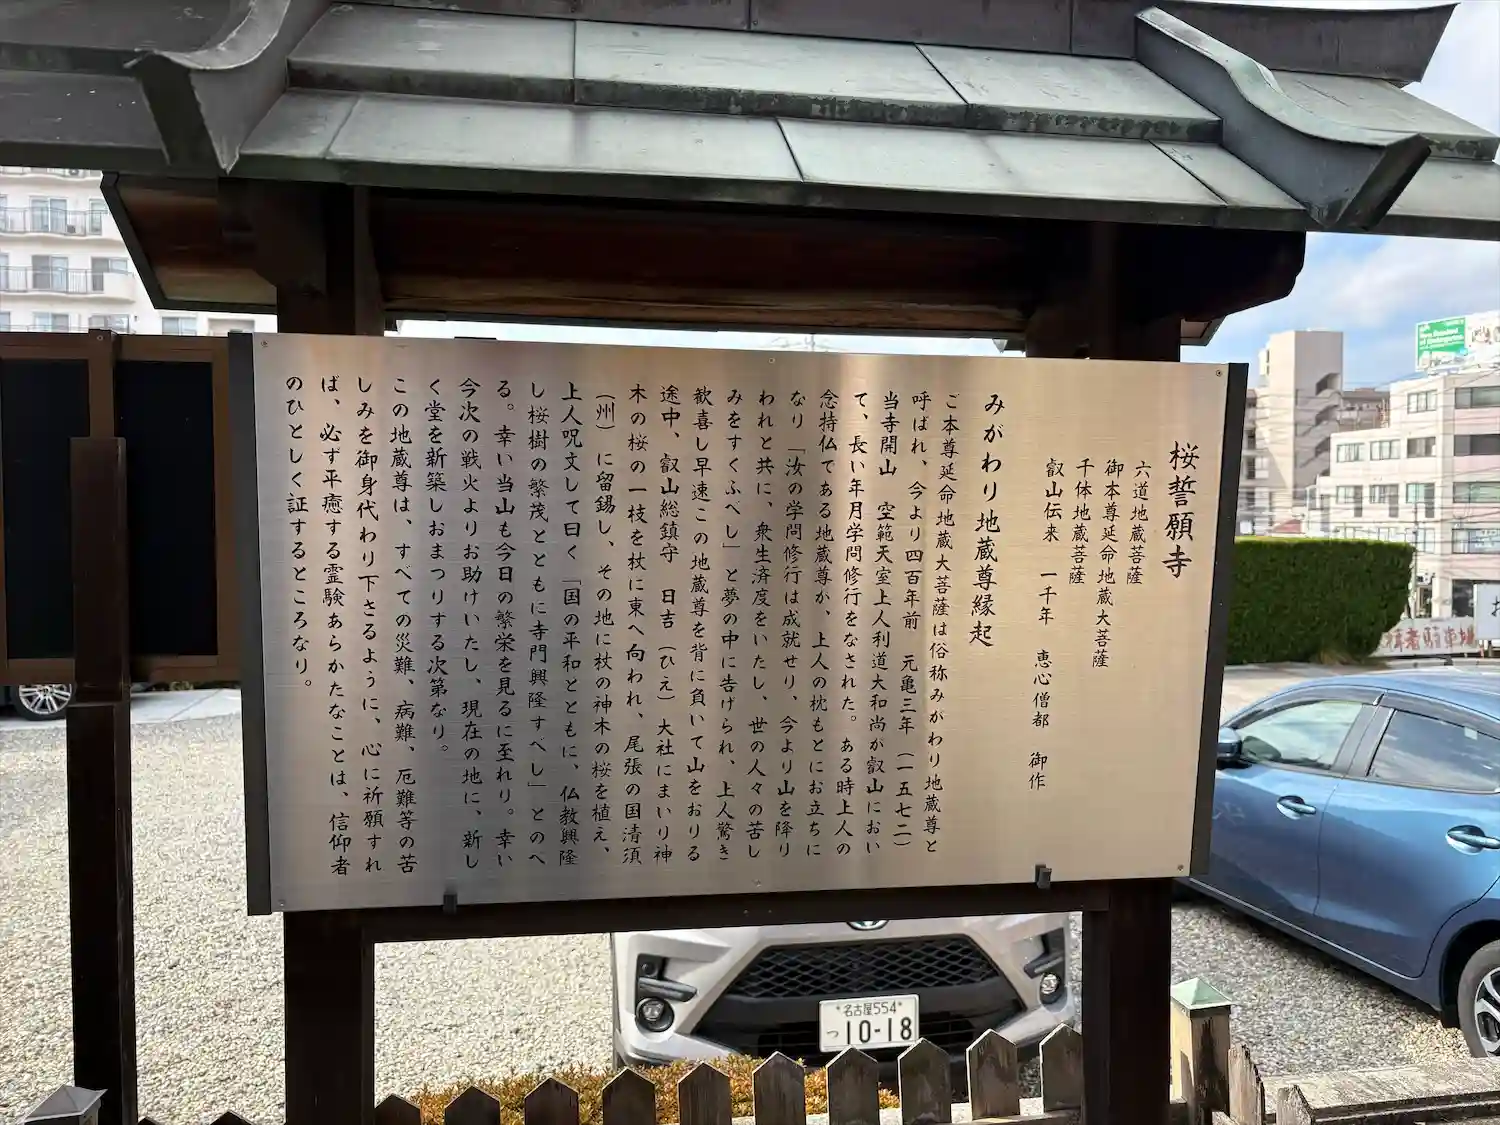 桜誓願寺
六道地蔵菩薩
御本尊延命地蔵大菩薩
千体地蔵菩薩
叡山伝来 一千年 恵心僧都 御作
みがわり地蔵尊縁起
ご本尊延命地蔵大菩薩は俗称みがわり地蔵尊と
呼ばれ、今より四百年前 元亀三年(一五七二)
当寺開山 空範天室上人利道大和尚が叡山におい
て、長い年月学問修行をなされた。ある時上人の
念持仏である地蔵尊が、上人の枕もとにお立ちに
なり「汝の学問修行は成就せり、今より山を降り
われと共に、衆生済度をいたし、世の人々の苦し
みをすくふべし」と夢の中に告げられ、上人驚き
歓喜し早速この地蔵尊を背に負いて山をおりる
途中、叡山総鎮守 日吉(ひえ)大社にまいり神
木の桜の一枝を杖に東へ向われ、尾張の国清須
(州)に留錫し、その地に杖の神木の桜を植え、
上人呪文して曰く「国の平和とともに、仏教興隆
し桜樹の繁茂とともに寺門興隆すべし」とのべ
る。幸い当山も今日の繁栄を見るに至れり。幸い
今次の戦火よりお助けいたし、現在の地に、新し
く堂を新築しおまつりする次第なり。
この地蔵尊は、すべての災難、病難、厄難等の苦
しみを御身代わり下さるように、心に祈願すれ
ば、必ず平癒する霊験あらかたなことは、信仰者
のひとしく証するところなり。
名古屋 554
つ 10-18